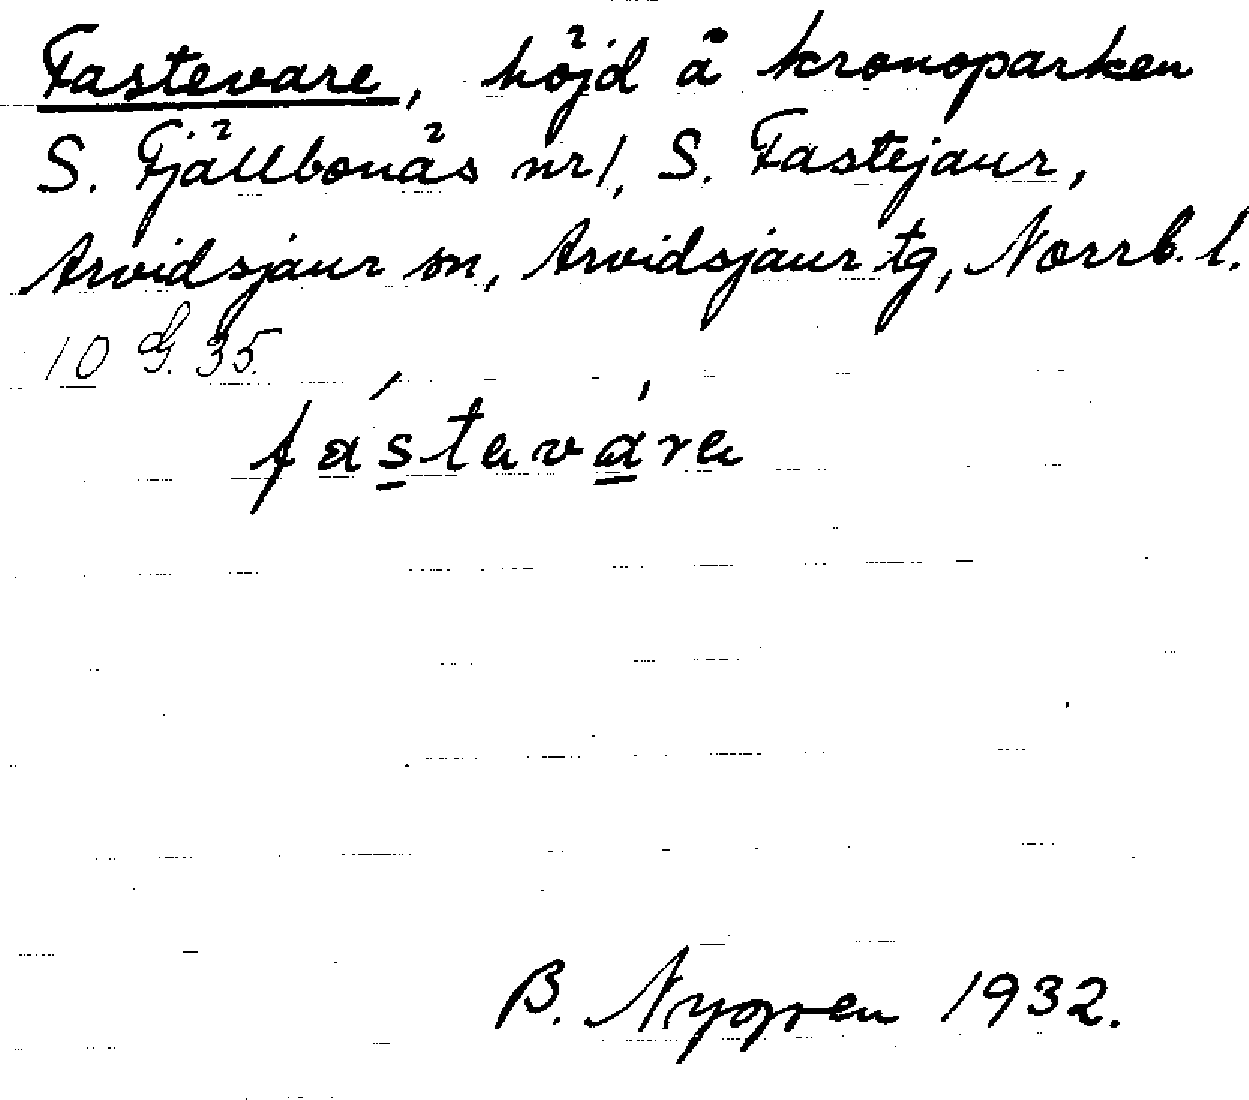 Fastevare, höjd å kronoparken
S. Fjällbonäs nr 1, S. Fastejaur,
Arvidsjaur sn, Arvidsjaur tg, Norrb. l.
10 dG. 35.
fástavára
B. Nygren 1932.